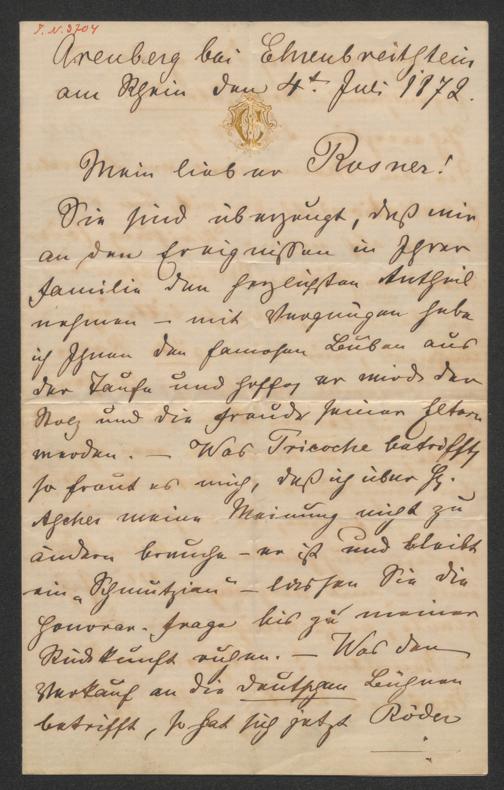 I.N. 3704
Arenberg bei Ehrenbreitstein
am Rhein den 4t Juli 1872.
Mein lieber Rosner!
Sie sind überzeugt, daß wir
an den Ereignissen in Ihrer
Familie den herzlichsten Antheil
nehmen – mit Vergnügen hebe
ich Ihnen den famosen Buben aus
der Taufe und hoffe, er wird der
Stolz und die Freude seiner Eltern
werden. – Was Tricoche betrifft,
so freut es mich, daß ich über H.
Ascher meine Meinung nicht zu
ändern brauche – er ist und bleibt
ein „Schmutzian“ – lassen Sie die
Honorar-Frage bis zu meiner
Rückkunft ruhen. – Was den
Verkauf an die deutschen Bühnen
betrifft, so hat sich jetzt Röder